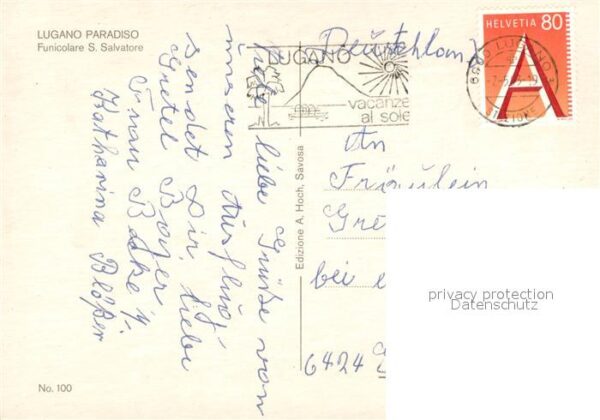 LUGANO PARADISO
Funicolare S. Salvatore
viele liebe Grüße von
unserem Ausflug,
sendet Dir, liebe
Gretel
Frau
Katharina
No. 100
Edizione A. Hoch, Savosa
LUGANO
vacanze
al sole
HELVETIA 80
A
6900 LUGANO
Deutschland
An
Fräulein
Gre
bei
6424
privacy protection
Datenschutz